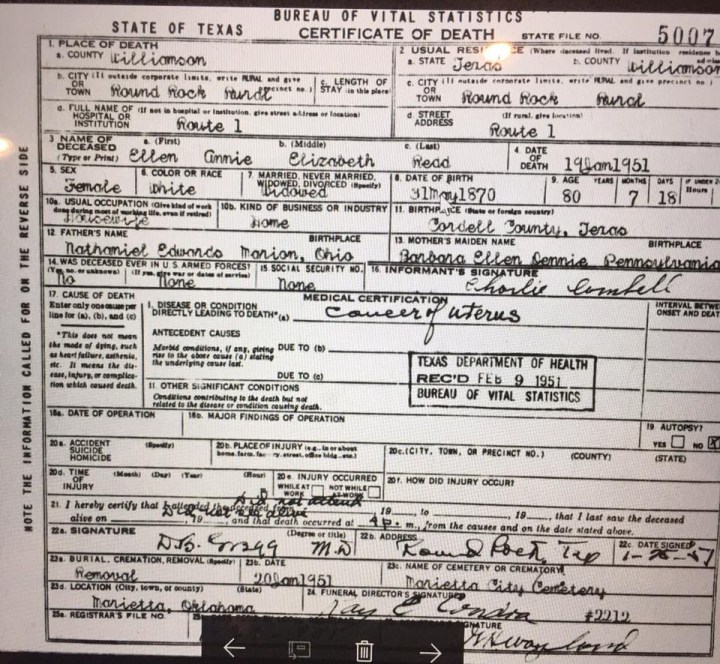 BUREAU OF VITAL STATISTICS
STATE OF TEXAS CERTIFICATE OF DEATH STATE FILE NO. 5007
1. PLACE OF DEATH 2 USUAL (Where deceased lived. If institution residence
a. COUNTY Williamson a. STATE Texas b. COUNTY Williamson
b. CITY (If outside corporate limits, write RURAL and give precinct no.) OR TOWN Round Rock Rural c. LENGTH OF STAY (in this place)
c. CITY (If outside corporate limits, write RURAL and give precinct no.) OR TOWN Round Rock Rural
d. FULL NAME OF (If not in hospital or institution, give street address or location) HOSPITAL OR INSTITUTION Route 1
d. STREET ADDRESS (If rural, give location) Route 1
3 NAME OF DECEASED (Type or Print) a. (First) b. (Middle) c. (Last) 4. DATE OF DEATH
Ellen Annie Elizabeth Read 19Jan1951
5. SEX 6. COLOR OR RACE 7. MARRIED, NEVER MARRIED, WIDOWED, DIVORCED (Specify) 8. DATE OF BIRTH 9. AGE YEARS MONTHS DAYS IF UNDER Hours
Female White Widowed 31May1870 80 7 18
10a. USUAL OCCUPATION (Give kind of work done during most of working life, even if retired) 10b. KIND OF BUSINESS OR INDUSTRY 11. BIRTHPLACE (State or foreign country)
Housewife Home Cordell County, Texas
12. FATHER'S NAME BIRTHPLACE 13. MOTHER'S MAIDEN NAME BIRTHPLACE
Nathaniel Edwards Marion, Ohio Barbara Ellen Dennie Pennsylvania
14. WAS DECEASED EVER IN U.S. ARMED FORCES? 15 SOCIAL SECURITY NO. 16. INFORMANT'S SIGNATURE
(Yes, no or unknown) (If yes, give war or dates of service)
No None None Charlie
17. CAUSE OF DEATH MEDICAL CERTIFICATION INTERVAL BETWEEN ONSET AND DEATH
Enter only one cause per line for (a), (b), and (c)
1. DISEASE OR CONDITION DIRECTLY LEADING TO DEATH* (a) Cancer of uterus
*This does not mean the mode of dying, such as heart failure, asthenia, etc. It means the disease, injury, or complication which caused death.
ANTECEDENT CAUSES
Morbid conditions, if any, giving rise to the above cause (a) stating the underlying cause last. DUE TO (b)
DUE TO (c)
TEXAS DEPARTMENT OF HEALTH
REC'D FEB 9 1951
BUREAU OF VITAL STATISTICS
11. OTHER SIGNIFICANT CONDITIONS
Conditions contributing to the death but not related to the disease or condition causing death.
18a. DATE OF OPERATION 18b. MAJOR FINDINGS OF OPERATION 19 AUTOPSY?
YES NO X
20a. ACCIDENT SUICIDE HOMICIDE (Specify) 20b. PLACE OF INJURY (e.g., in or about home, farm, factory, street, office bldg., etc.) 20c. (CITY, TOWN, OR PRECINCT NO.) (COUNTY) (STATE)
20d. TIME OF INJURY (Month) (Day) (Year) (Hour) 20e. INJURY OCCURRED WHILE AT WORK NOT WHILE AT WORK 20f. HOW DID INJURY OCCUR?
Did not attend
21. I hereby certify that I attended the deceased from , 19 , to , 19 , that I last saw the deceased
alive on , 19 , and that death occurred at 4 p. m., from the causes and on the date stated above.
22a. SIGNATURE (Degree or title) 22b. ADDRESS 22c. DATE SIGNED
D.B. Gregg M.D Round Rock Tex
23a. BURIAL, CREMATION, REMOVAL (Specify) 23b. DATE 23c. NAME OF CEMETERY OR CREMATORY
Removal 20Jan1951 Marietta City Cemetery
23d. LOCATION (City, town, or county) (State) 24. FUNERAL DIRECTOR'S SIGNATURE
Marietta, Oklahoma Ray E Condra #2212
25a. REGISTRAR'S FILE NO.
NOTE THE INFORMATION CALLED FOR ON THE REVERSE SIDE